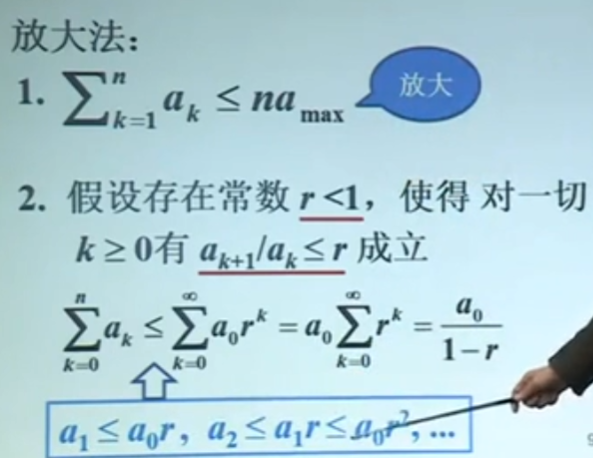 放大法：
1. \sum_{k=1}^{n} a_k ≤ na_{max}
放大
2. 假设存在常数 r <1，使得 对一切
k ≥ 0有 a_{k+1}/a_k ≤ r 成立
\sum_{k=0}^{n} a_k ≤ \sum_{k=0}^{∞} a_0 r^k = a_0 \sum_{k=0}^{∞} r^k = \frac{a_0}{1-r}
a_1 ≤ a_0 r，a_2 ≤ a_1 r ≤ a_0 r^2, ...